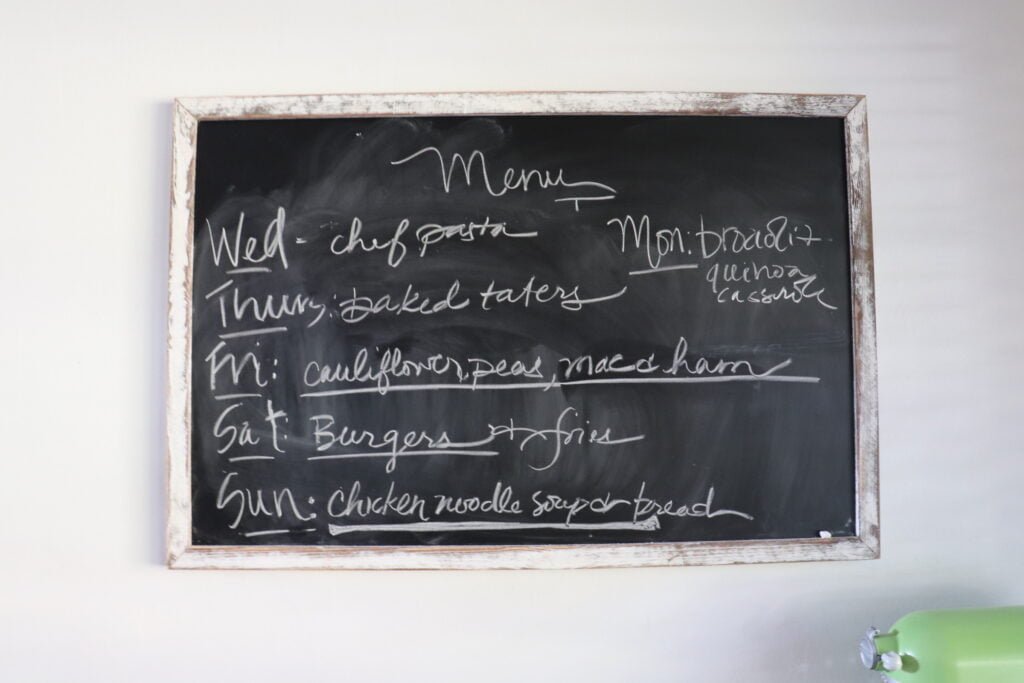 Menu
Wed - chef pasta
Thurs: baked taters
Fri: cauliflower, peas, mac & ham
Sat: Burgers & fries
Sun: chicken noodle soup & bread
Mon:
quinoa
casserole